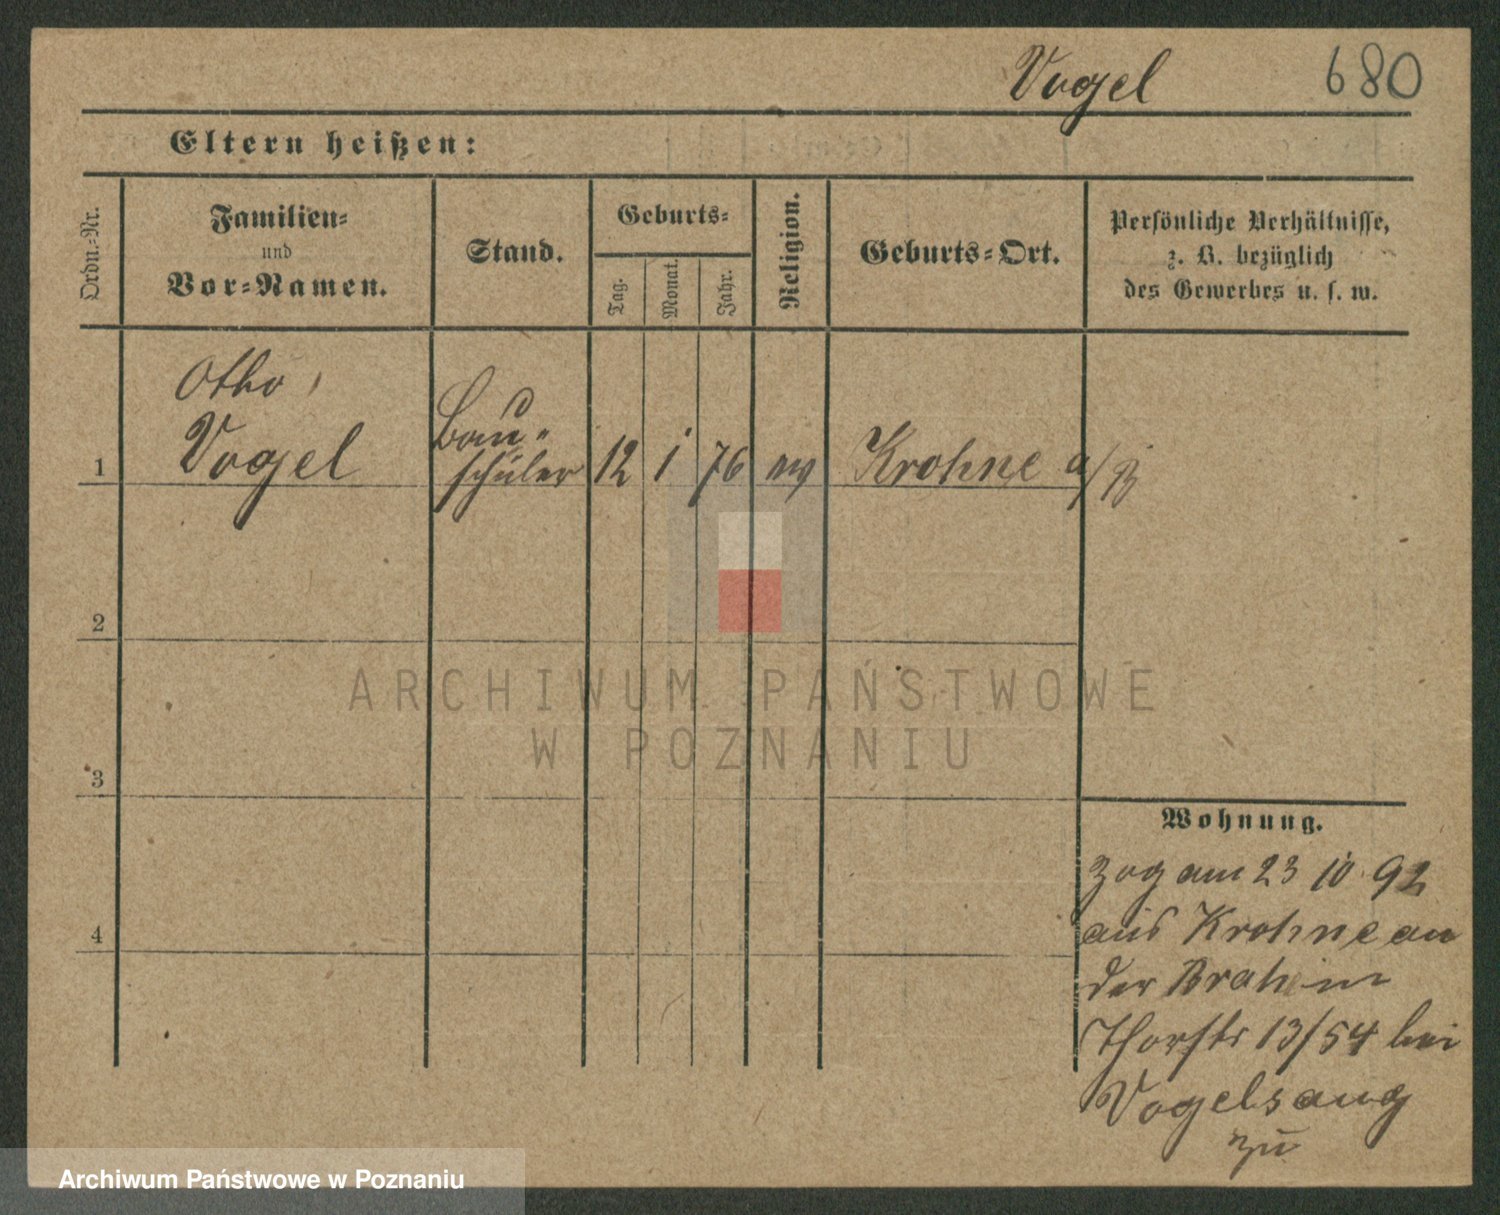 Vogel 680
Eltern heißen:
Ordn.-Nr.
Familien-
und
Vor-Namen.
Stand.
Geburts-
Tag.
Monat.
Jahr.
Religion.
Geburts-Ort.
Persönliche Verhältnisse,
z. B. bezüglich
des Gewerbes u. s. w.
Otto
Vogel
Bau-
schüler
1 12 1 76 ev Krohne a/B
2
3
4
ARCHIWUM PAŃSTWOWE
W POZNANIU
Wohnung.
Zog am 23 10 92
aus Krohne an
der Brahe in
Thorstr 13/54 bei
Vogelsang
zu
Archiwum Państwowe w Poznaniu